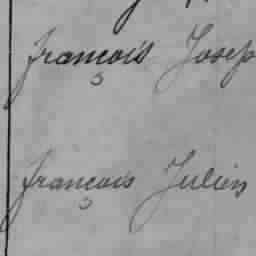 françois Josep
françois Julien